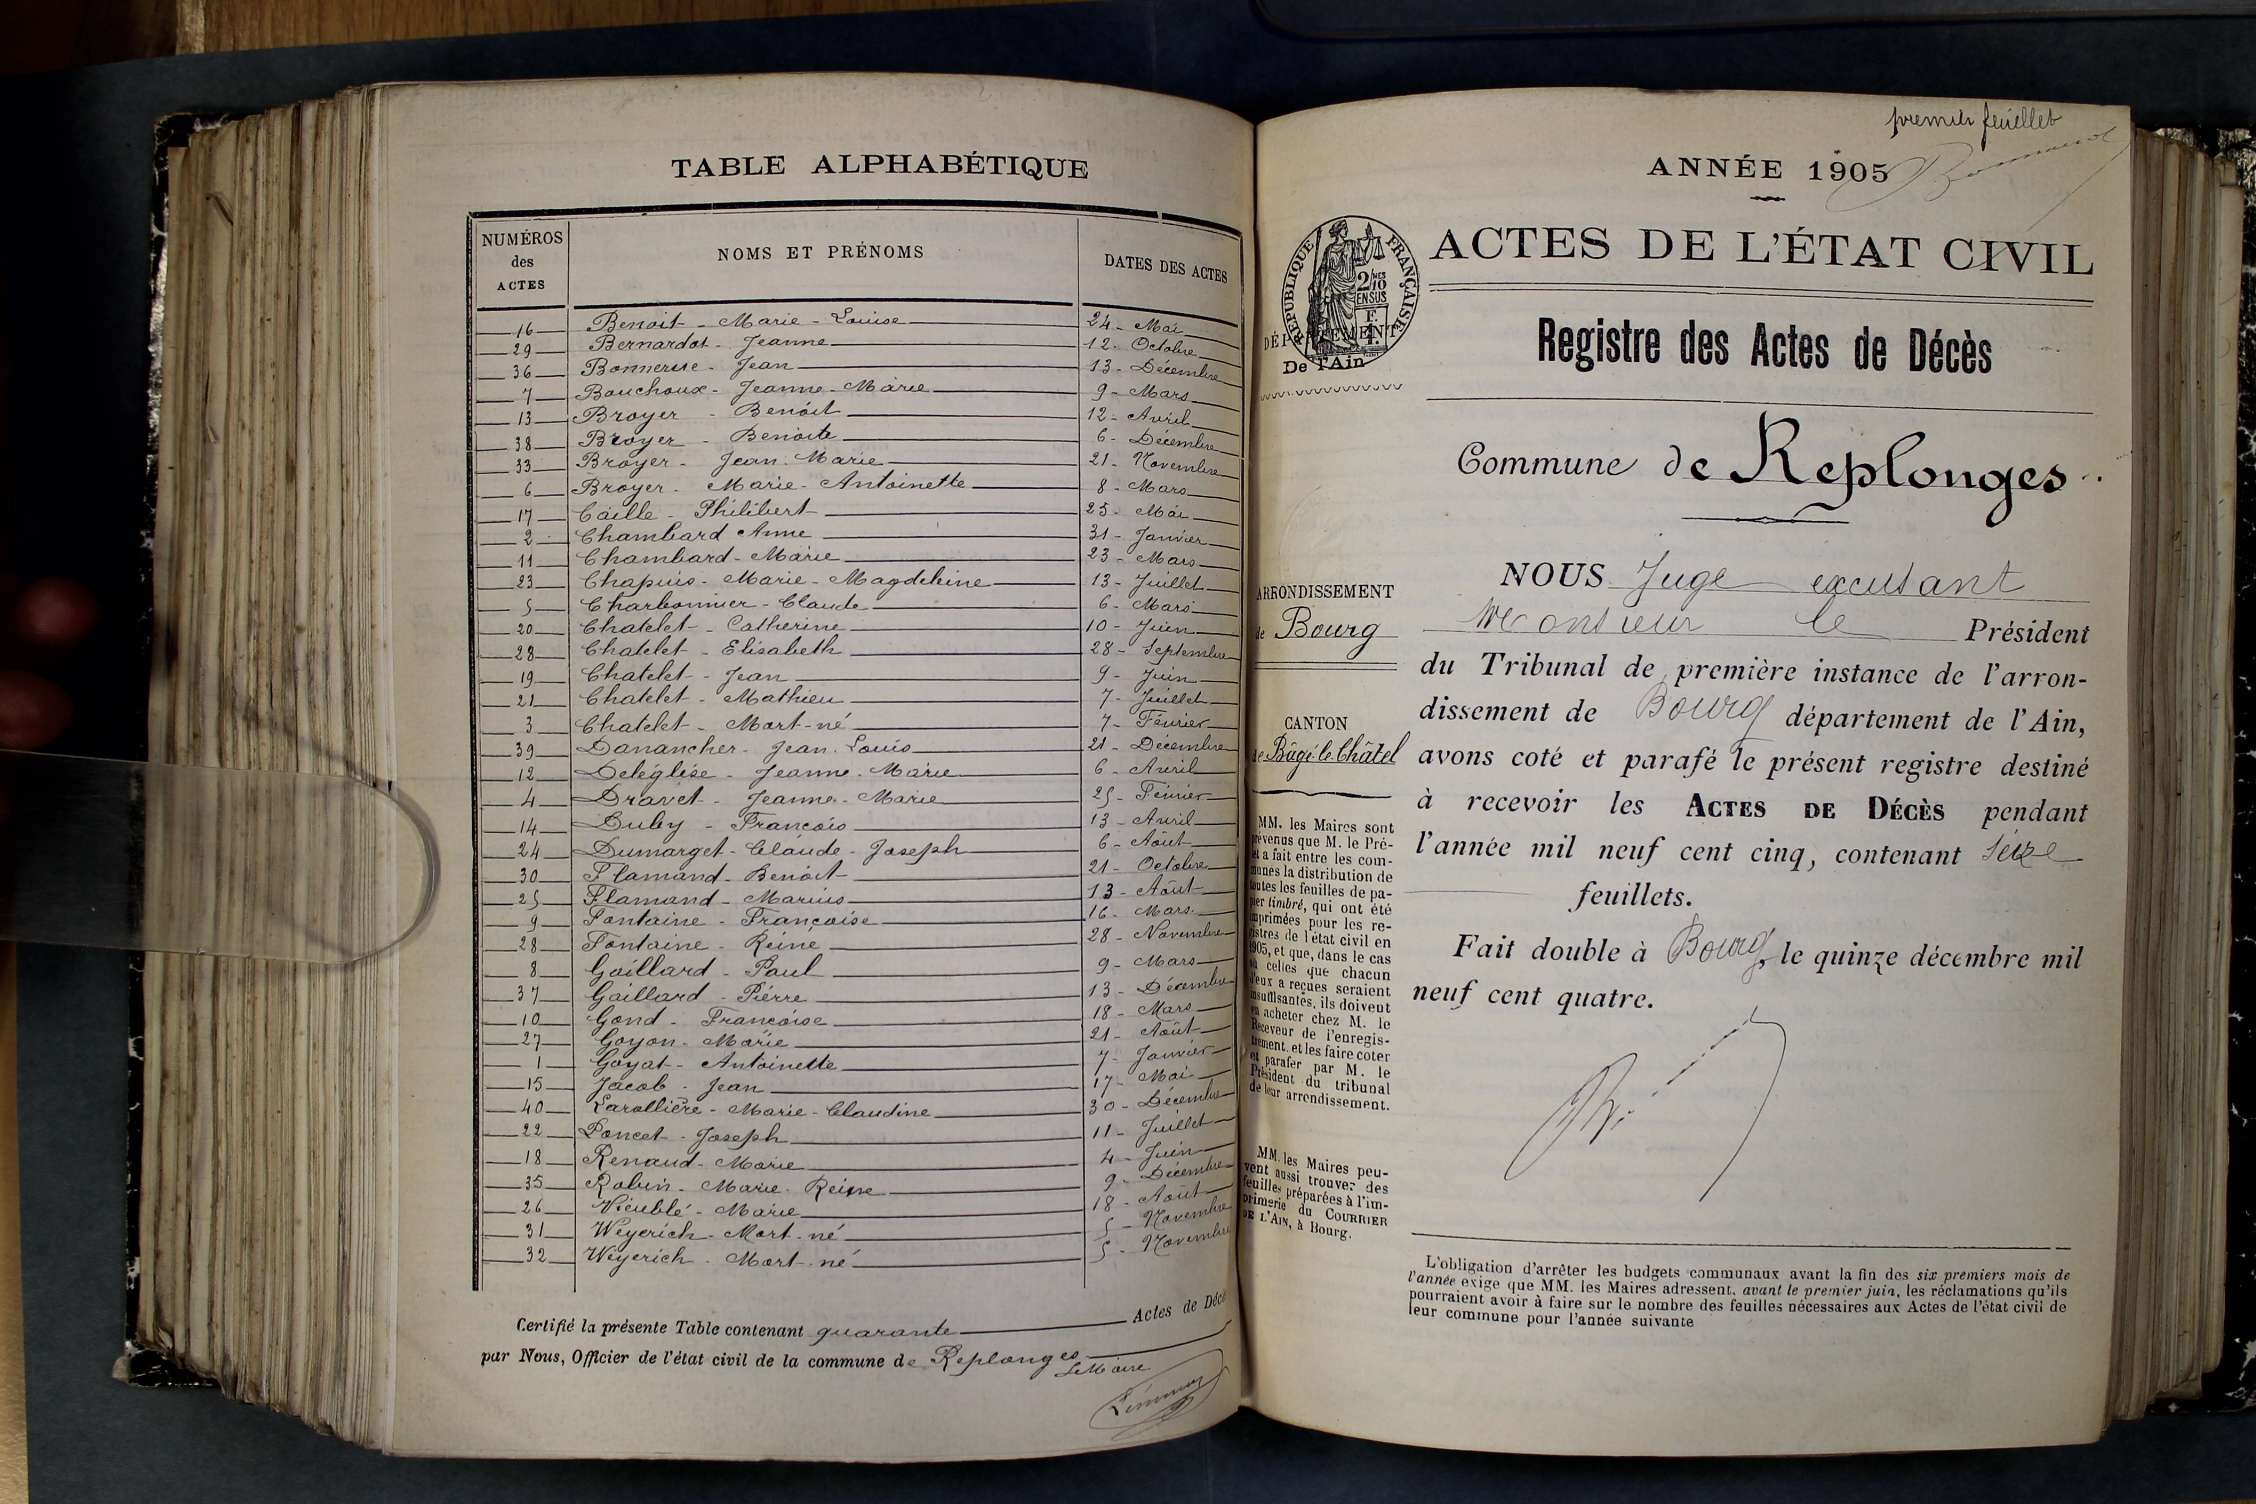 TABLE ALPHABÉTIQUE
NUMÉROS des ACTES NOMS ET PRÉNOMS DATES DES ACTES
16 Benoit - Marie - Louise 24 - Mai
29 Bernardot - Jeanne 12 - Octobre
36 Bonnerue - Jean 13 - Décembre
7 Bouchoux - Jeanne - Marie 9 - Mars
13 Broyer - Benoit 12 - Avril
38 Broyer - Benoite 6 - Décembre
33 Broyer - Jean Marie 21 - Novembre
6 Broyer - Marie - Antoinette 8 - Mars
17 Caille - Philibert 25 - Mai
2 Chambard Anne 31 - Janvier
11 Chambard - Marie 23 - Mars
23 Chapuis - Marie - Magdeleine 13 - Juillet
5 Charbonnier - Claude 6 - Mars
20 Chatelet - Catherine 10 - Juin
28 Chatelet - Elisabeth 28 - Septembre
19 Chatelet - Jean 9 - Juin
21 Chatelet - Mathieu 7 - Juillet
3 Chatelet - Mort-né 7 - Février
39 Danancher - Jean Louis 21 - Décembre
12 Deléglise - Jeanne - Marie 6 - Avril
4 Dravet - Jeanne - Marie 25 - Février
14 Duby - François 13 - Avril
24 Dumarget - Claude - Joseph 6 - Août
30 Flamand - Benoit 21 - Octobre
25 Flamand - Marius 13 - Août
9 Fontaine - Françoise 16 - Mars
28 Fontaine - Reine 28 - Novembre
8 Gaillard - Paul 9 - Mars
37 Gaillard - Pierre 13 - Décembre
10 Gond - Françoise 18 - Mars
27 Goyon - Marie 21 - Août
1 Goyat - Antoinette 7 - Janvier
15 Jacob - Jean 17 - Mai
40 Larollière - Marie - Claudine 30 - Décembre
22 Poncet - Joseph 11 - Juillet
18 Renaud - Marie 4 - Juin
35 Robin - Marie Reine 9 - Décembre
26 Vieublé - Marie 18 - Août
31 Weyerich - Mort-né 5 - Novembre
32 Weyerich - Mort-né 5 - Novembre
Certifié la présente Table contenant quarante Actes de Décè
par Nous, Officier de l'état civil de la commune de Replonges
Le Maire
premier feuillet
ANNÉE 1905
RÉPUBLIQUE FRANÇAISE
2/10 EN SUS
F. 1.
DÉPARTEMENT
De l'Ain
ACTES DE L'ÉTAT CIVIL
Registre des Actes de Décès
Commune de Replonges
ARRONDISSEMENT
de Bourg
CANTON
de Bâgé-le-Châtel
MM. les Maires sont
prévenus que M. le Pré-
et a fait entre les com-
munes la distribution de
toutes les feuilles de pa-
pier timbré, qui ont été
imprimées pour les re-
gistres de l'état civil en
1905, et que, dans le cas
où celles que chacun
d'eux a reçues seraient
insuffisantes, ils doivent
en acheter chez M. le
Receveur de l'enregis-
trement, et les faire coter
et parafer par M. le
Président du tribunal
de leur arrondissement.
MM. les Maires peu-
vent aussi trouver des
feuilles préparées à l'im-
primerie du COURRIER
DE L'AIN, à Bourg.
NOUS Juge excusant
Monsieur le Président
du Tribunal de première instance de l'arron-
dissement de Bourg département de l'Ain,
avons coté et parafé le présent registre destiné
à recevoir les ACTES DE DÉCÈS pendant
l'année mil neuf cent cinq, contenant seize
feuillets.
Fait double à Bourg, le quinze décembre mil
neuf cent quatre.
L'obligation d'arrêter les budgets communaux avant la fin des six premiers mois de
l'année exige que MM. les Maires adressent, avant le premier juin, les réclamations qu'ils
pourraient avoir à faire sur le nombre des feuilles nécessaires aux Actes de l'état civil de
leur commune pour l'année suivante